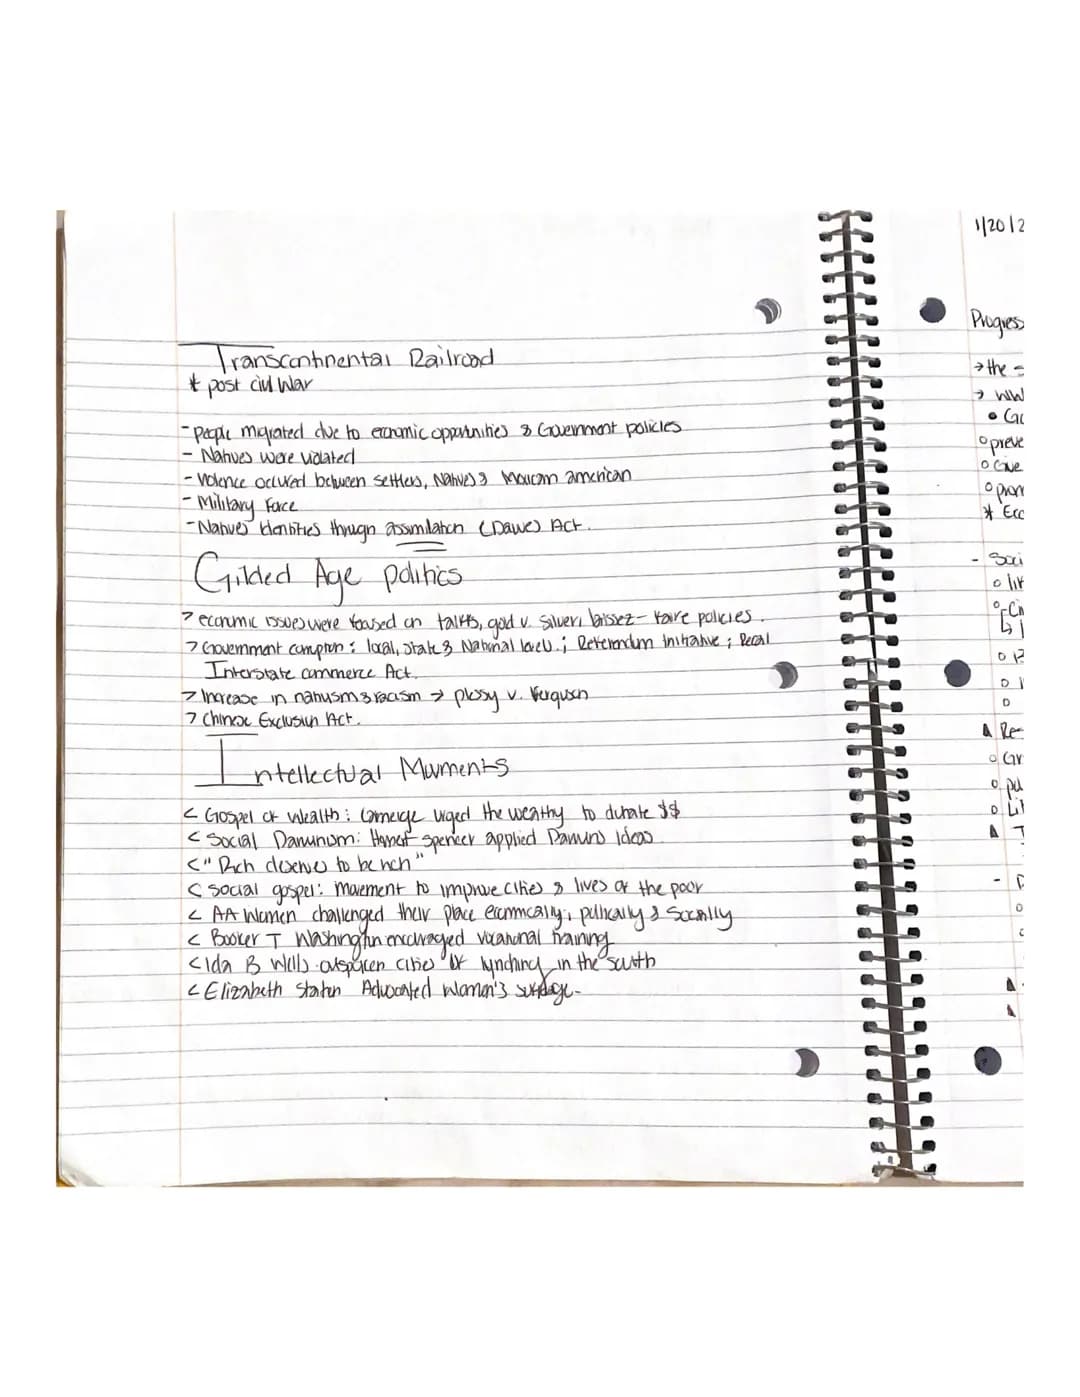 Transcontinental Railroad
* post civil War
- People migrated due to economic opportunities & Government policies
- Natives were violated
- Violence occured between settlers, Natives & Mexican american
- Military Force
- Natives identities through assimilation (Dawes) Act.
Gilded Age politics
> economic issues were focused on tariffs, gold v. Silver, laissez-faire policies.
> Government corruption: local, state & National level.; Referendum initiative; Recall
Interstate commerce Act.
> Increase in nativism & racism → plessy v. Ferguson
> Chinese Exclusion Act.
Intellectual Movements
< Gospel of Wealth: Carnegie urged the wealthy to donate $$
< Social Darwinism: Spencer applied Darwin's Ideas
< "Rich deserves to be rich"
< Social gospel: movement to improve cities & lives of the poor
< AA Women challenged their place economically, politically & Socially
< Booker T Washington encouraged vocational training
< Ida B Wells outspoken of lynching in the south
< Elizabeth Advocated Women's suffrage.
1/20/2
Progress
→ the
→ WW
• Go
o preve
o Give
o prom
* Eco
- Soci
o lit
▲ Re
o Gr
o pu
o Lit
▲ T